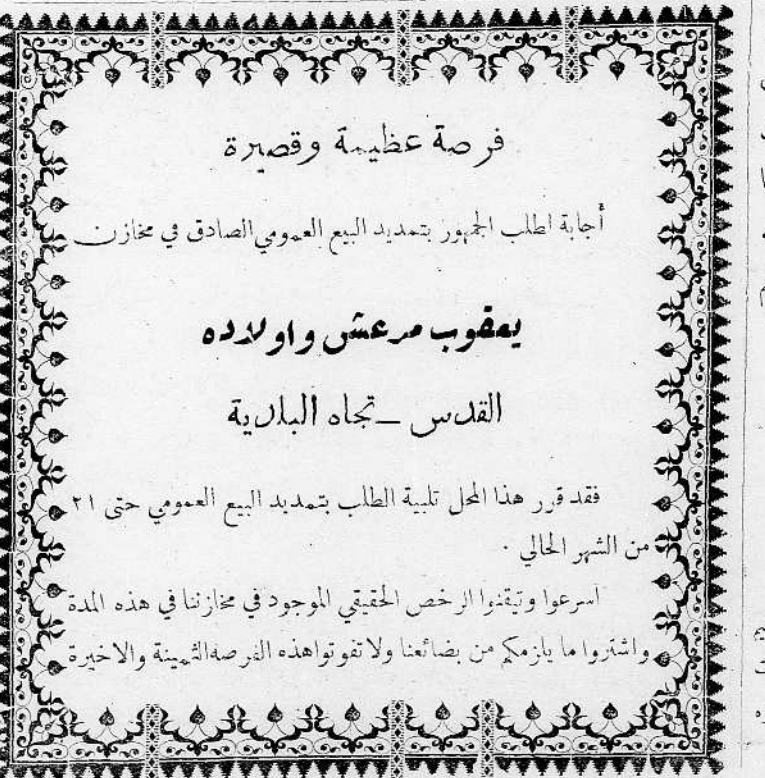 فرصة عظيمة وقصيرة
أجابة لطلب الجمهور بتمديد البيع العمومي الصادق في مخازن
يعقوب مرعش واولاده
القدس – تجاه البلدية
فقد قرر هذا المحل تلبية الطلب بتمديد البيع العمومي حتى ٢١
من الشهر الحالي .
اسرعوا وتيقنوا الرخص الحقيقي الموجود في مخازننا في هذه المدة
واشتروا ما يلزمكم من بضائعنا ولا تفوتوا هذه الفرصه الثمينة والاخيرة